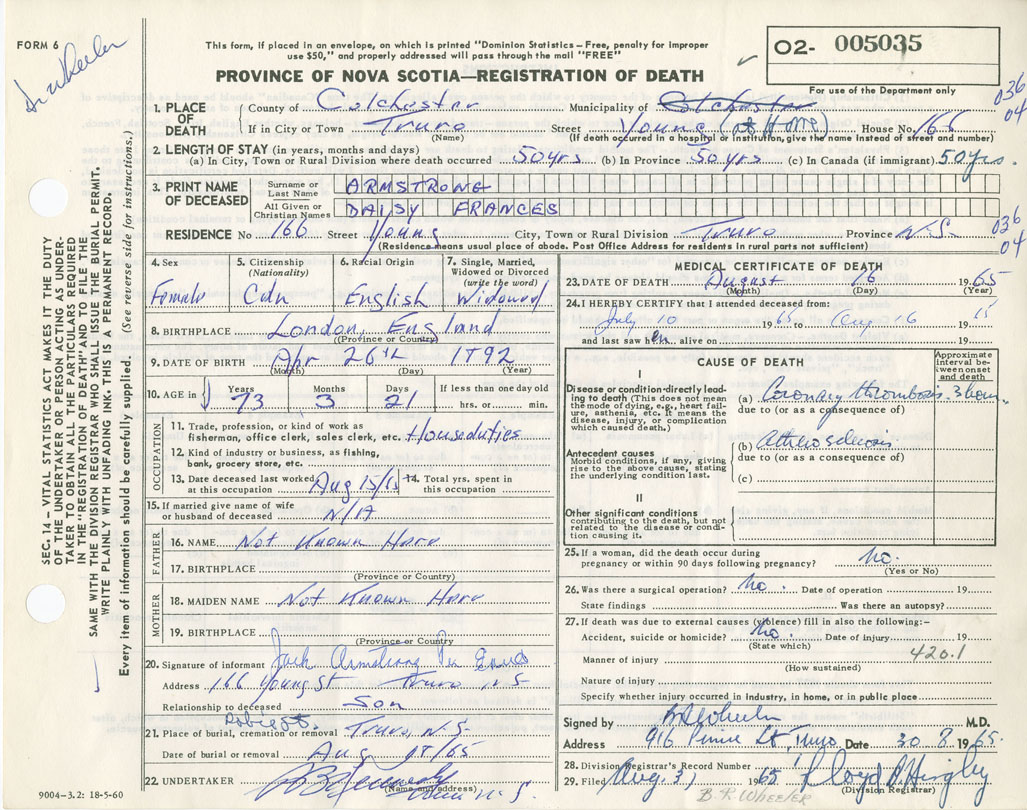 FORM 6
Dr Wheeler
This form, if placed in an envelope, on which is printed "Dominion Statistics—Free, penalty for improper
use $50," and properly addressed will pass through the mail "FREE"
PROVINCE OF NOVA SCOTIA—REGISTRATION OF DEATH
O2- 005035
For use of the Department only
036
04
1. PLACE OF DEATH
County of Colchester Municipality of Colchester
If in City or Town Truro Street Young (at Home) House No. 166
(Name) (If death occurred in a hospital or institution, give the name instead of street and number)
2. LENGTH OF STAY (in years, months and days)
(a) In City, Town or Rural Division where death occurred 50 yrs (b) In Province 50 yrs (c) In Canada (if immigrant) 50 yrs.
3. PRINT NAME OF DECEASED
Surname or Last Name ARMSTRONG
All Given or Christian Names DAISY FRANCES
RESIDENCE No 166 Street Young City, Town or Rural Division Truro Province N.S.
(Residence means usual place of abode. Post Office Address for residents in rural parts not sufficient)
036
04
4. Sex
Female
5. Citizenship
(Nationality)
Cdn
6. Racial Origin
English
7. Single, Married, Widowed or Divorced
(write the word)
Widowed
8. BIRTHPLACE London, England
(Province or Country)
9. DATE OF BIRTH Apr 26th 1892
(Month) (Day) (Year)
10. AGE in
Years Months Days If less than one day old
73 3 21 hrs. or min.
OCCUPATION
11. Trade, profession, or kind of work as
fisherman, office clerk, sales clerk, etc. Houseduties
12. Kind of industry or business, as fishing,
bank, grocery store, etc.
13. Date deceased last worked
at this occupation Aug 15/65
14. Total yrs. spent in
this occupation
15. If married give name of wife
or husband of deceased N/A
FATHER
16. NAME Not Known Here
17. BIRTHPLACE
(Province or Country)
MOTHER
18. MAIDEN NAME Not Known Here
19. BIRTHPLACE
(Province or Country)
20. Signature of informant Jack Armstrong Per
Address 166 Young St Truro N.S
Relationship to deceased Son
Robie St.
21. Place of burial, cremation or removal Truro, N.S.
Date of burial or removal Aug 18/65
22. UNDERTAKER
(Name and address)
N.S.
9004-3.2: 18-5-60
SEC. 14 – VITAL STATISTICS ACT MAKES IT THE DUTY
OF THE UNDERTAKER OR PERSON ACTING AS UNDER-
TAKER TO OBTAIN ALL THE PARTICULARS REQUIRED
IN THE "REGISTRATION OF DEATH" AND TO FILE THE
SAME WITH THE DIVISION REGISTRAR WHO SHALL ISSUE THE BURIAL PERMIT.
WRITE PLAINLY WITH UNFADING INK. THIS IS A PERMANENT RECORD.
Every item of information should be carefully supplied. (See reverse side for instructions.)
MEDICAL CERTIFICATE OF DEATH
23. DATE OF DEATH August 16 1965
(Month) (Day) (Year)
24. I HEREBY CERTIFY that I attended deceased from:
July 10 1965 to Aug 16 19
and last saw her alive on 19
CAUSE OF DEATH
Approximate interval between onset and death
I
Disease or condition directly lead-
ing to death (This does not mean
the mode of dying, e.g., heart fail-
ure, asthenia, etc. It means the
disease, injury, or complication
which caused death.)
(a) Coronary thrombosis 3 hours
due to (or as a consequence of)
Antecedent causes
Morbid conditions, if any, giving
rise to the above cause, stating
the underlying condition last.
(b) Atherosclerosis
due to (or as a consequence of)
(c)
II
Other significant conditions
contributing to the death, but not
related to the disease or condi-
tion causing it.
25. If a woman, did the death occur during
pregnancy or within 90 days following pregnancy? no.
(Yes or No)
26. Was there a surgical operation? no. Date of operation 19
State findings Was there an autopsy?
27. If death was due to external causes (violence) fill in also the following:-
Accident, suicide or homicide? no. Date of injury 19
(State which)
Manner of injury 420.1
(How sustained)
Nature of injury
Specify whether injury occurred in industry, in home, or in public place
Signed by BR Wheeler M.D.
Address 916 Prince St, Truro Date 30 8 1965.
28. Division Registrar's Record Number
29. Filed Aug. 31 1965 Lloyd
(Division Registrar)
B-R WHEELER